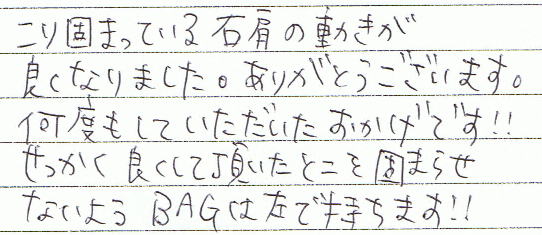 こり固まっている右肩の動きが
良くなりました。ありがとうございます。
何度もしていただいたおかげです!!
せっかく良くして頂いたところを固まらせ
ないようBAGは左で持ちます!!